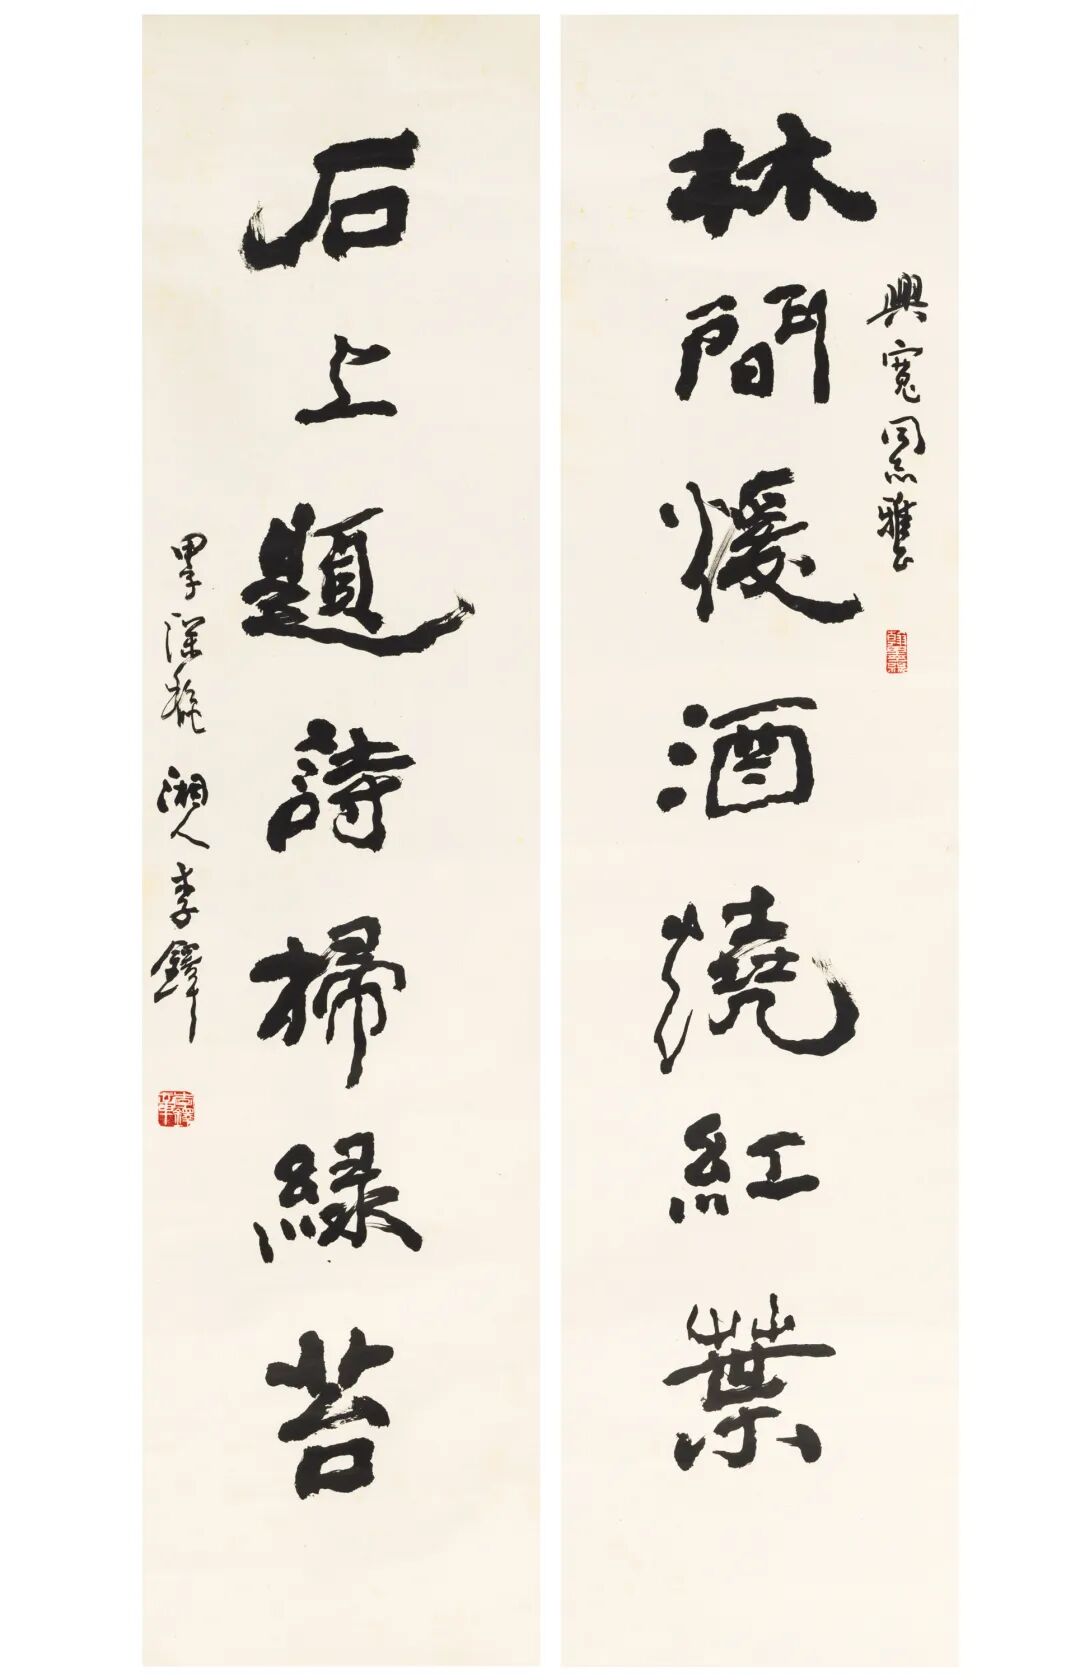 興寬同志雅正
林間煖酒燒紅葉
石上題詩掃綠苔
甲子深秋湘人李鐸